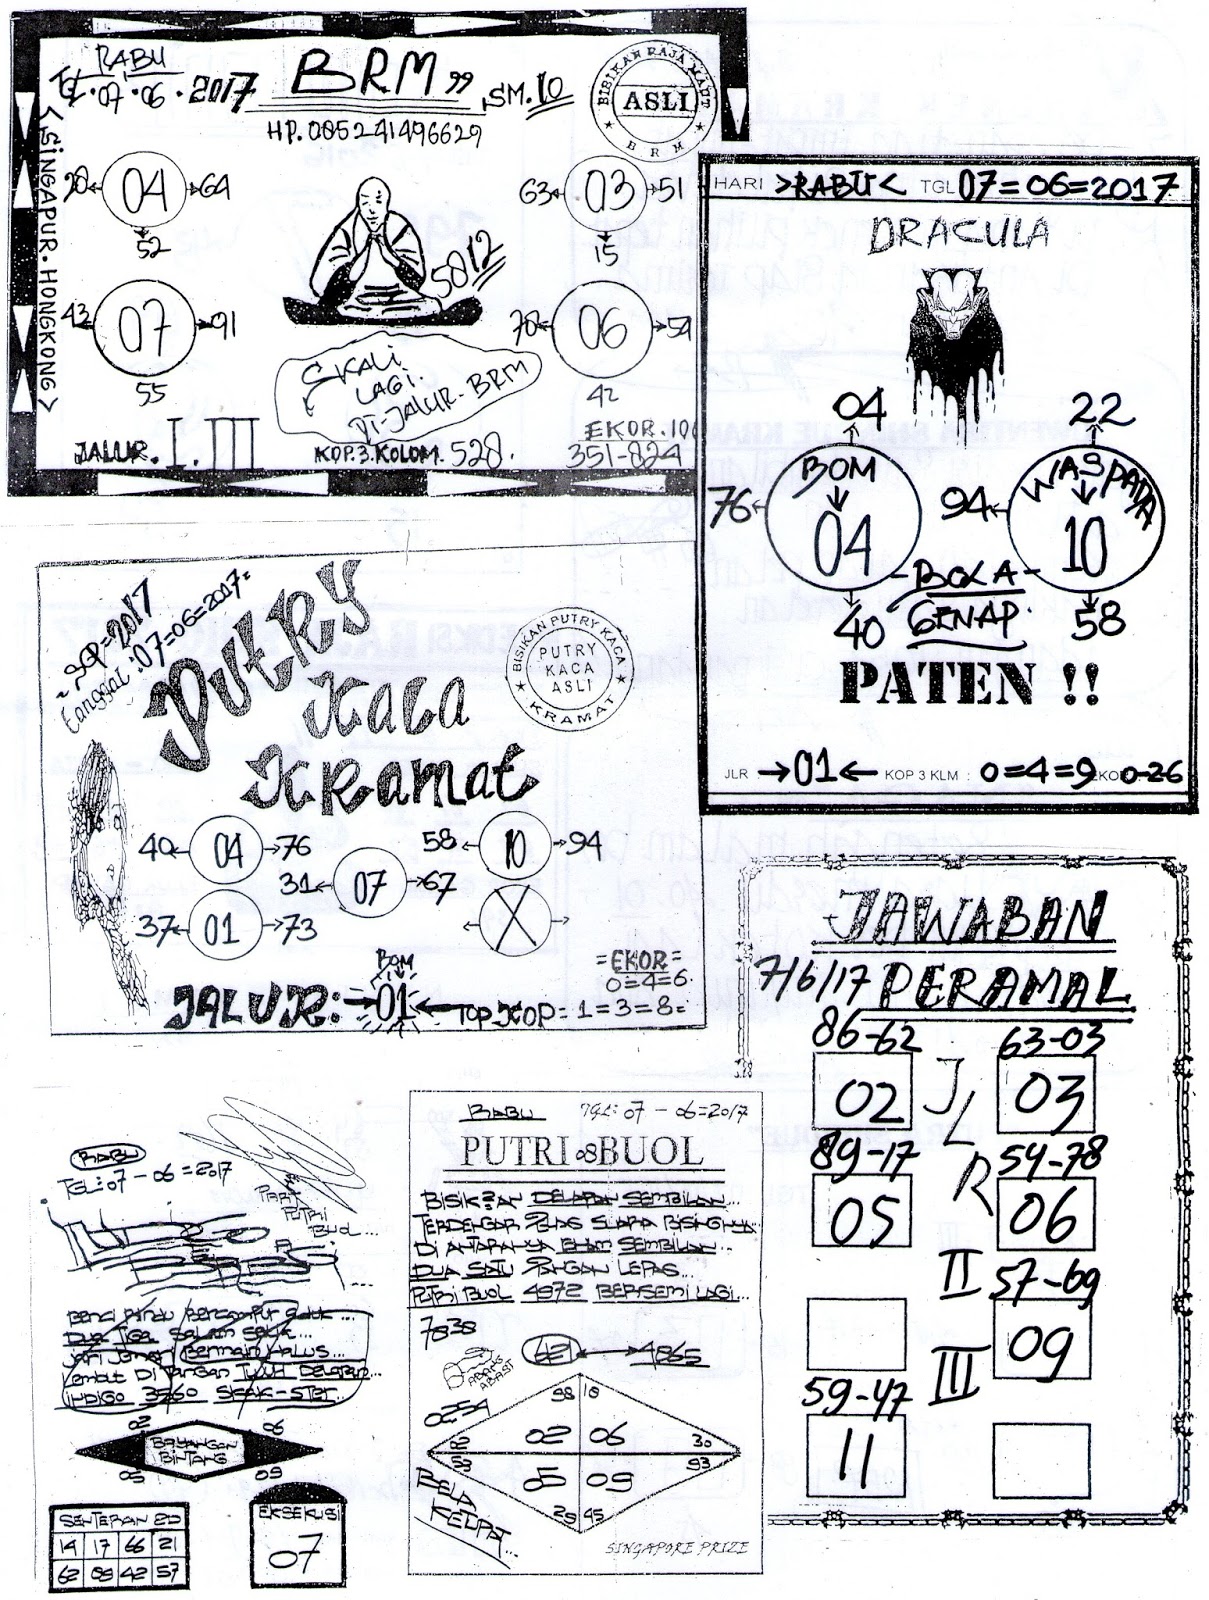 RABU
TGL.07.06.2017
BRM"
SM.10
HP. 085241496629
BISIKAN RAJA MAUT
ASLI
BRM
<SINGAPUR.HONGKONG>
04
64
52
63
03
51
15
07
91
55
5812
06
54
42
SKALI
LAGI.
DI-JALUR-BRM
JALUR. I.III
KOP.3.KOLOM. 528.
EKOR.106
351-824
HARI >RABU< TGL 07=06=2017
DRACULA
04
22
BOM
WASPADA
76
04
94
10
-BOLA-
GENAP.
40
58
PATEN !!
JLR →01← KOP 3 KLM : 0=4=9 EKO 0-26
SGP=2017
Tanggal :07=06=2017=
PUTRY
KACA
KRAMAT
BISIKAN PUTRY KACA
PUTRY
KACA
ASLI
KRAMAT
40 04 76
58 10 94
31 07 67
37 01 73
BOM
JALUR:→01←TOP KOP=1=3=8=
=EKOR=
0=4=6
JAWABAN
7/6/17 PERAMAL
86-62
63-03
02
03
JLR
89-17
54-78
05
06
II
57-69
09
III
59-47
11
RABU
TGL:07-06=2017
PUTRI
BUOL...
02
06
BAYANGAN
BINTANG
05
09
SENTERAN 2D
14 17 66 21
62 09 42 57
EKSEKUSI
07
RABU TGL:07-06=2017
PUTRI 08 BUOL
BISIKAN DELAPAN SEMBILAN...
TERDENGAR JELAS SUARA BISINGNYA
DI ANTARANYA ENAM SEMBILAN...
DUA SATU JANGAN LEPAS...
PUTRI BUOL 4972 BERSEMI LAGI...
7838
62
4865
0254
98
10
02
06
62
30
53
93
05
09
29
45
BELA
KETUPAT...
SINGAPORE PRIZE